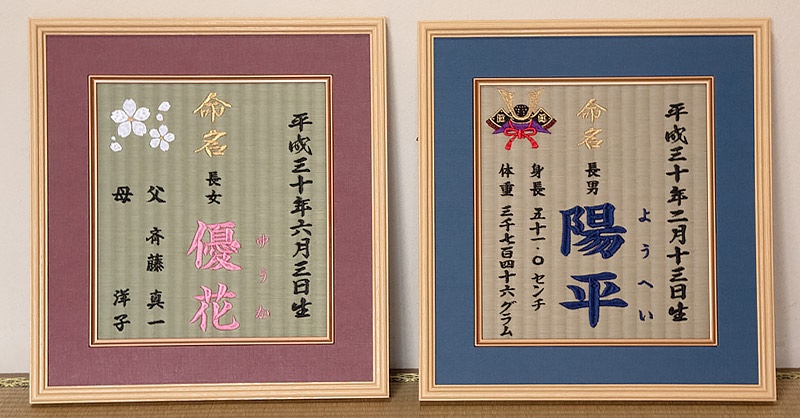 平成三十年六月三日生
命名
長女
優花
ゆうか
父 斉藤 真一
母 洋子
平成三十年二月十三日生
命名
長男
陽平
ようへい
身長 五十一.〇センチ
体重 三千七百四十六グラム